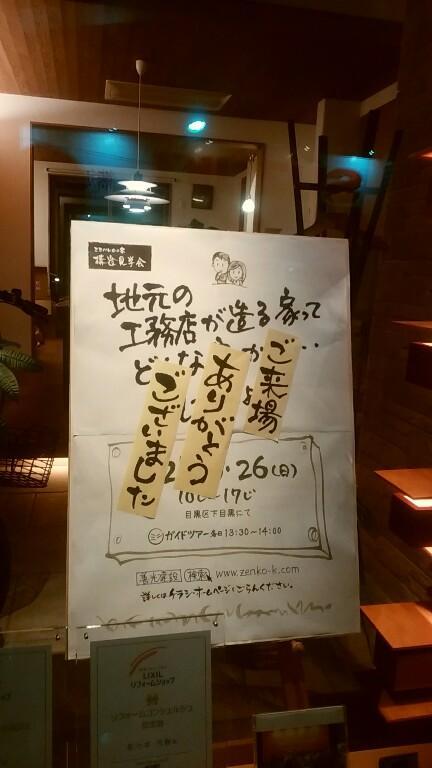 ZENKOの家
構造見学会
地元の
工務店が造る家って
ど
な
ご来場
ありがとう
ございました
26(日)
17じ
目黒区下目黒にて
ミニ ガイドツアー 各日13:30~14:00
善光建設 検索 www.zenko-k.com
詳しくはチラシ・ホームページごらんください。
LIXIL
リフォームショップ
リフォームコンシェルジュ